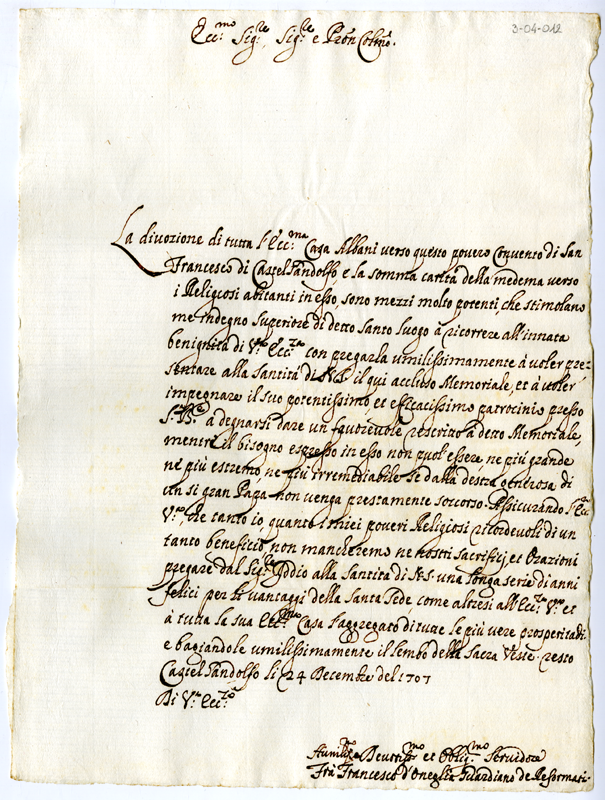 3-04-012
Ecc:mo Sig:re, Sig:re e Prõn Colmo.
La divozione di tutta l'Ecc:ma Casa Albani verso questo povero Convento di San
Francesco di Castel Gandolfo, e la somma carità della medema verso
i Religiosi abitanti in esso, sono mezzi molto potenti, che stimolano
me indegno Superiore di detto Santo luogo à ricorrere all'innata
benignità di V:ra Ecc:za con pregarla umilissimamente à voler pre-
sentare alla Santità di N.S. il qui accluso Memoriale, et à voler
impegnare il suo potentissimo, et efficacissimo patrocinio presso
S. B:ne a degnarsi dare un favorevole rescritto a detto Memoriale,
mentre il bisogno espresso in esso non puol essere, ne più grande
ne più estremo, ne più irremediabile se dalla destra generosa di
un si gran Papa non venga prestamente soccorso. Assicurando l'Ecc:
V:ra, che tanto io, quanto i miei poveri Religiosi ricordevoli di un
tanto beneficio, non mancheremo ne nostri Sacrifici, et Orazioni
pregare dal Sig:re Iddio alla Santità di N.S. una longa serie di anni
felici per li vantaggi della Santa Sede, come altresi all'Ecc:za V:ra et
à tutta la sua Ecc:ma Casa l'aggregato di tutte le più vere prosperità di
e bagiandole umilissimamente il lembo della Sacra Veste. resto
Castel Gandolfo li 24 Decembre del 1707
Di V:ra Ecc:za
Aumiliss:o Devotiss:mo et Oblig:mo Servidore
Frà Francesco d'Oneglia Guardiano de Reformati